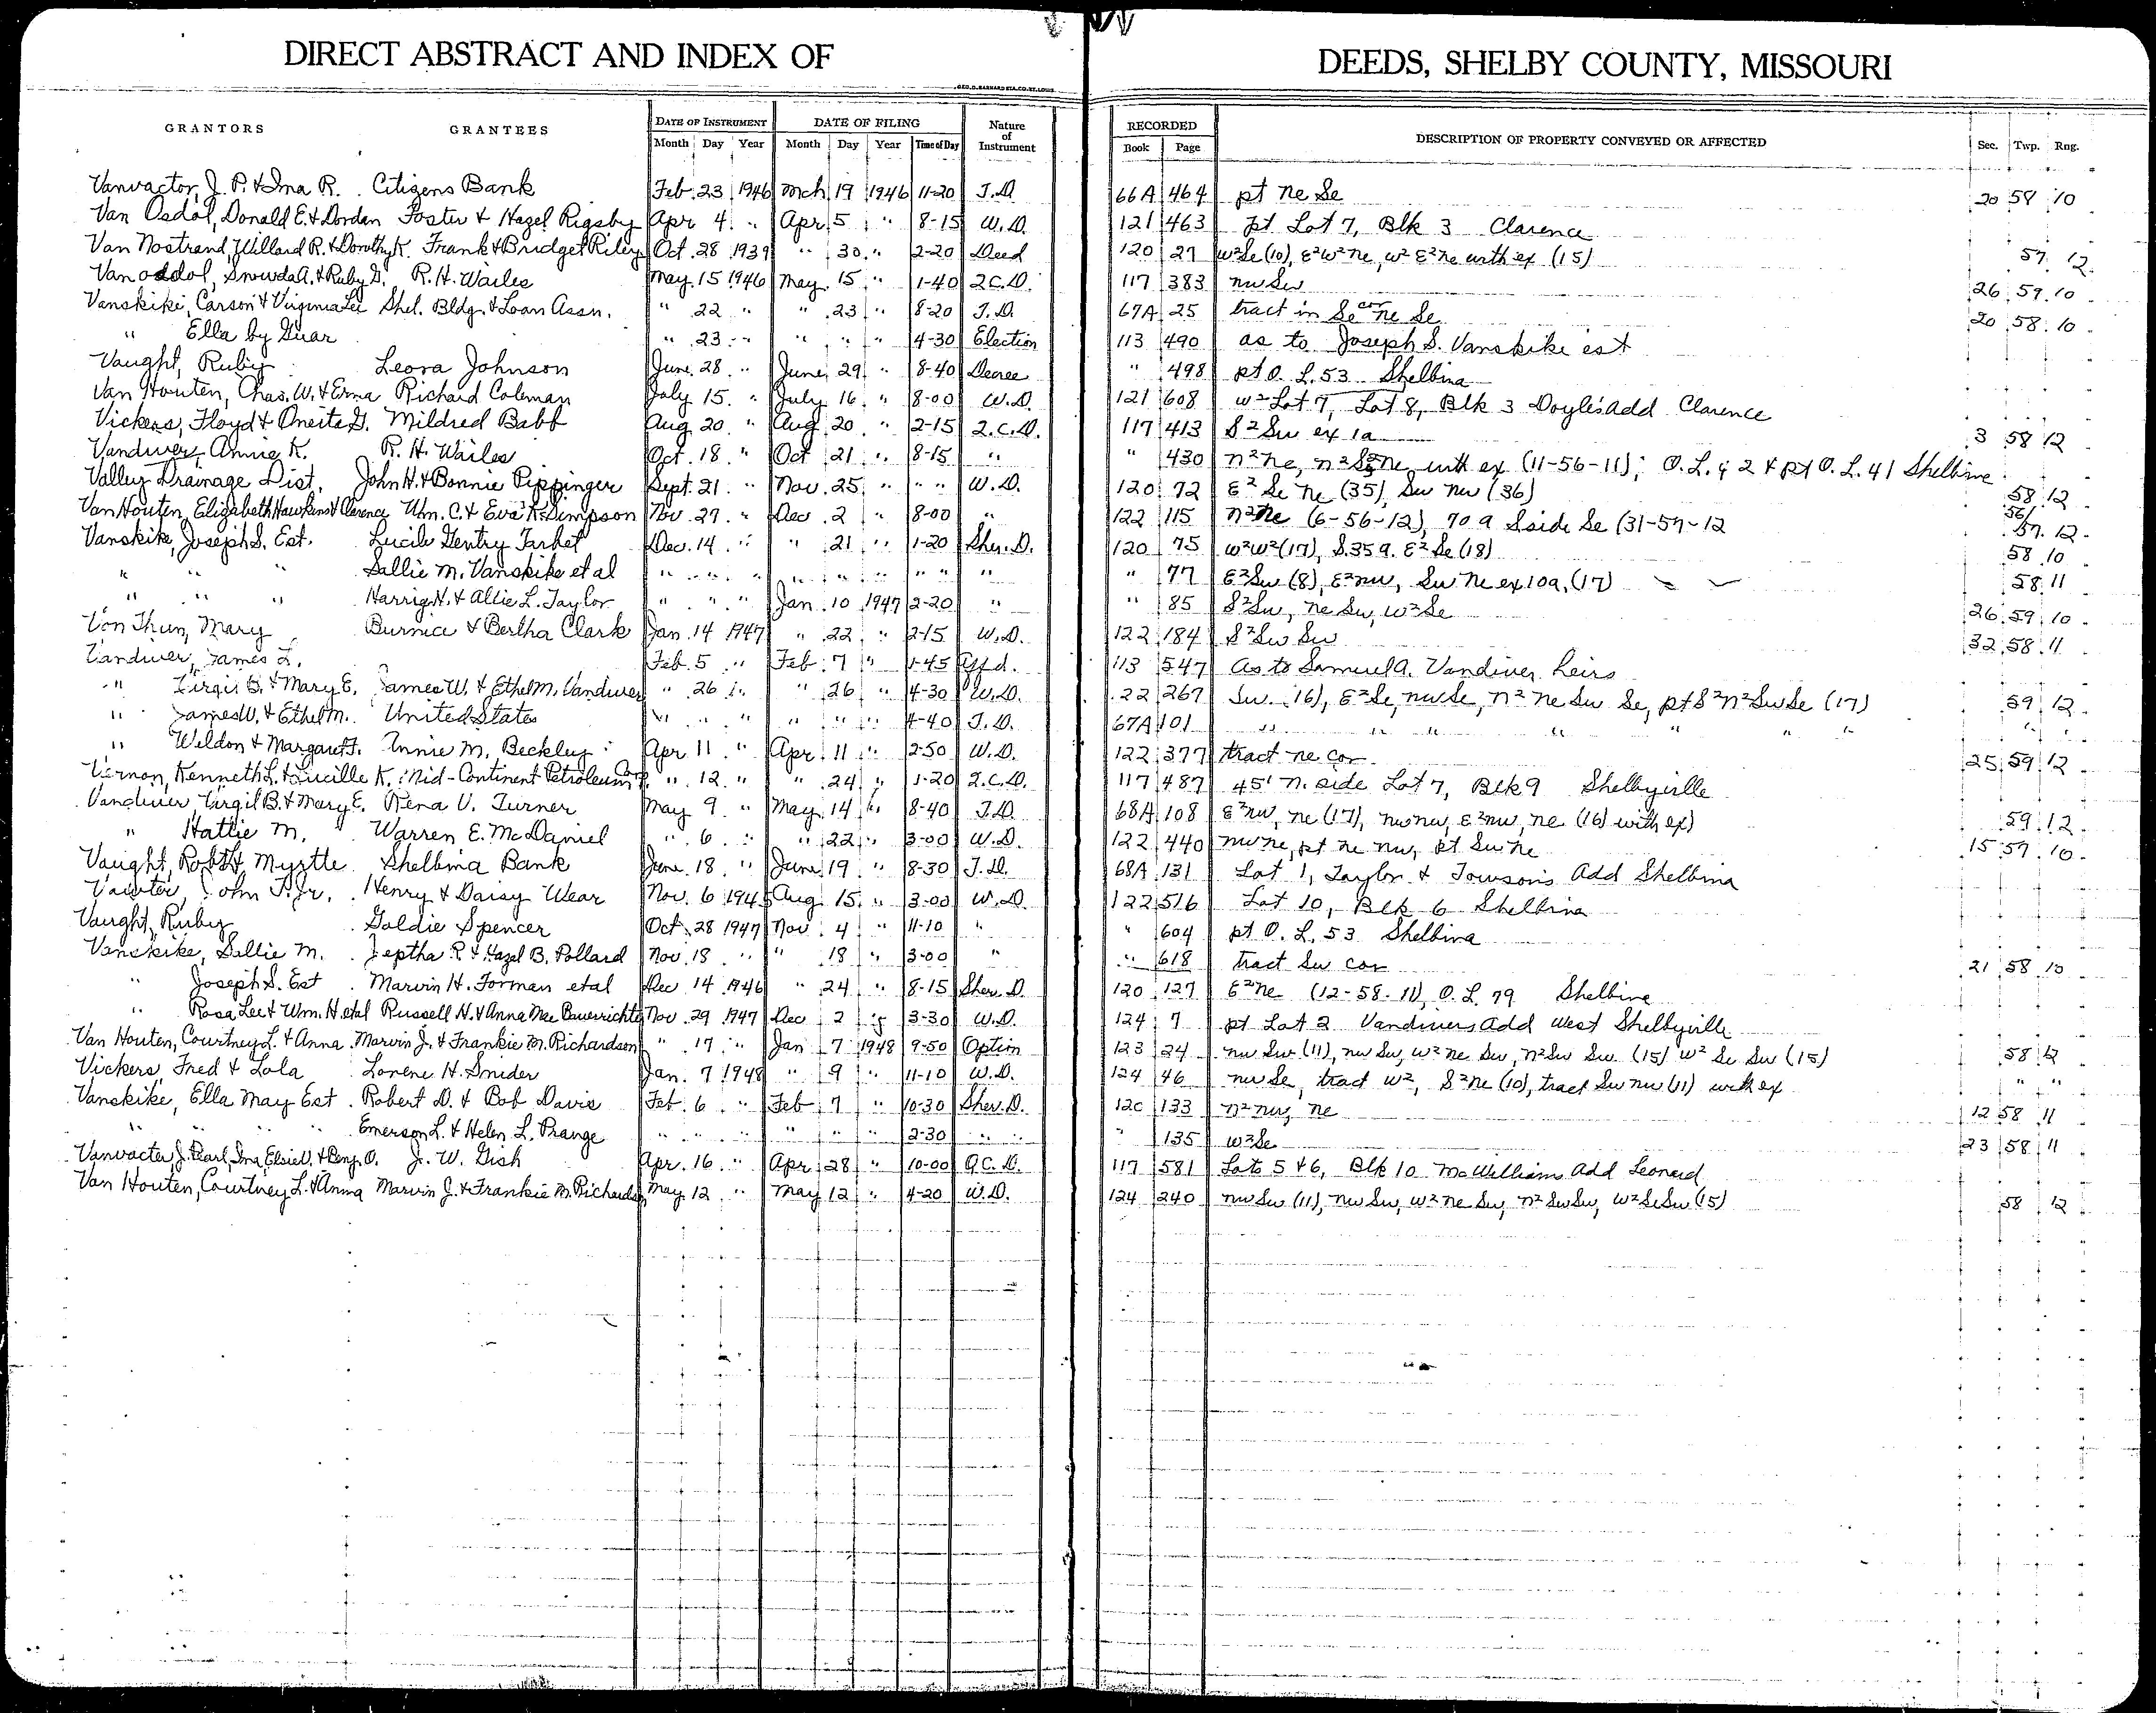 DIRECT ABSTRACT AND INDEX OF DEEDS, SHELBY COUNTY, MISSOURI
GEO. D. BARNARD STA. CO. ST. LOUIS
GRANTORS GRANTEES DATE OF INSTRUMENT DATE OF FILING Nature of Instrument RECORDED DESCRIPTION OF PROPERTY CONVEYED OR AFFECTED Sec. Twp. Rng.
Month Day Year Month Day Year Time of Day Book Page
Vanvactor, J. P. & Ina R. Citizens Bank Feb. 23 1946 Mch 19 1946 11-20 T.D. 66A 464 pt ne Se 20 58 10
Van Osdol, Donald E. & Dordan Foster & Hazel Rigsby Apr 4 " Apr 5 " 8-15 W.D. 121 463 pt Lot 7, Blk 3 Clarence
Van Nostrand, Willard R. & Dorothy K. Frank & Bridget Riley Oct 28 1939 " 30 " 2-20 Deed 120 27 W²Se (10), E²W²ne, W²E²ne with ex (15) 57 12
Van osdol, Snowda A. & Ruby D. R. H. Wailes May 15 1946 May 15 " 1-40 Q.C.D. 117 383 nw Sw 26 59 10
Vanskike, Carson & Virginia Lee Shel. Bldg. & Loan Assn. " 22 " " 23 " 8-20 T.D. 67A 25 tract in Se cor ne Se 20 58 10
" Ella by Guar " 23 " " " " 4-30 Election 113 490 as to Joseph S. Vanskike est
Vaught, Ruby Leora Johnson June 28 " June 29 " 8-40 Decree " 498 pt O. L. 53 Shelbina
Van Houten, Chas. W. & Erma Richard Coleman July 15 " July 16 " 8-00 W.D. 121 608 W² Lot 7, Lot 8, Blk 3 Doyle's Add Clarence
Vickers, Floyd & Oneita G. Mildred Babb Aug 20 " Aug 20 " 2-15 Q.C.D. 117 413 S² Sw ex 1a 3 58 12
Vandiver, Annie K. R. H. Wailes Oct. 18 " Oct 21 " 8-15 " " 430 n²ne, n² Se ne with ex (11-56-11); O. L. 2 & pt O. L. 41 Shelbina
Valley Drainage Dist. John H. & Bonnie Pippinger Sept. 21 " Nov. 25 " " " W.D. 120 72 E² Se ne (35), Sw nw (36) 58 12
Van Houten, Elizabeth Hawkins & Clarence Wm. C. & Eva K. Simpson Nov. 27 " Dec. 2 " 8-00 " 122 115 n²ne (6-56-12), 70 a S side Se (31-57-12 56/57 12
Vanskike, Joseph S. Est. Lucile Gentry Tarbet Dec. 14 " " 21 " 1-20 Sher. D. 120 75 W²W² (17), S. 35 a. E² Se (18) 58 10
" " " Sallie M. Vanskike et al " " " " " " " " " " 77 E²Sw (8), E²nw, Sw ne ex 10a, (17) 58 11
" " " Harrig H. & Allie L. Taylor " " " Jan. 10 1947 2-20 " " 85 S²Sw, ne Sw, W²Se 26 59 10
Von Thun, Mary Burnice & Bertha Clark Jan. 14 1947 " 22 " 2-15 W.D. 122 184 S²Sw Sw 32 58 11
Vandiver, James L. Feb. 5 " Feb. 7 " 1-45 Affd. 113 547 As to Samuel A. Vandiver heirs
" Virgil B. & Mary E. James W. & Ethel M. Vandiver " 26 " " 26 " 4-30 W.D. 22 267 Sw. 16), E²Se, nw Se, n² ne Sw Se, pt S² n² Sw Se (17) 59 12
" James W. & Ethel M. United States " " " " " " 4-40 T.D. 67A 101 " " " " " " "
" Weldon & Margaret F. Annie M. Beckley Apr 11 " Apr. 11 " 2-50 W.D. 122 377 tract ne cor. 25 59 12
Vernon, Kenneth L. & Lucille K. Mid-Continent Petroleum Corp. " 12 " " 24 " 1-20 Q.C.D. 117 487 45' n. side Lot 7, Blk 9 Shelbyville
Vandiver, Virgil B. & Mary E. Rena V. Turner May 9 " May 14 " 8-40 T.D. 68A 108 E²nw, ne (17), nw nw, E²nw, ne (16) with ex) 59 12
" Hattie M. Warren E. McDaniel " 6 " " 22 " 3-00 W.D. 122 440 nw ne, pt ne nw, pt Sw ne 15 57 10
Vaught, Robt & Myrtle Shelbina Bank June 18 " June 19 " 8-30 T.D. 68A 131 Lot 1, Taylor & Towson's Add Shelbina
Vawter, John T. Jr. Henry & Daisy Wear Nov. 6 1945 Aug 15 " 3-00 W.D. 122 516 Lot 10, Blk 6 Shelbina
Vaught, Ruby Goldie Spencer Oct. 28 1947 Nov. 4 " 11-10 " " 604 pt O. L. 53 Shelbina
Vanskike, Sallie M. Jeptha R. & Hazel B. Pollard Nov. 18 " " 18 " 3-00 " " 618 tract Sw cor 21 58 10
" Joseph S. Est Marvin H. Forman et al Dec 14 1946 " 24 " 8-15 Sher. D. 120 127 E²ne (12-58-11), O. L. 79 Shelbina
" Rosa Lee & Wm. H. etal Russell H. & Anna Mae Bauerrichter Nov. 29 1947 Dec 2 " 3-30 W.D. 124 7 pt Lot 2 Vandivers Add West Shelbyville
Van Houten, Courtney L. & Anna Marvin J. & Frankie M. Richardson " 17 " Jan 7 1948 9-50 Option 123 24 nw Sw (11), nw Sw, W² ne Sw, n² Sw Sw (15) W² Se Sw (15) 58 12
Vickers, Fred & Lola Lorene H. Snider Jan. 7 1948 " 9 " 11-10 W.D. 124 46 nw Se, tract W², S²ne (10), tract Sw nw (11) with ex " "
Vanskike, Ella May Est. Robert D. & Bob Davis Feb. 6 " Feb 7 " 10-30 Sher. D. 120 133 n² nw, ne 12 58 11
" " " " Emerson L. & Helen L. Prange " " " " " " 2-30 " " " 135 W²Se 23 58 11
Vanvacter, J. Pearl, Ina, Elsie V. & Benj. O. J. W. Gish Apr. 16 " Apr 28 " 10-00 Q.C.D. 117 581 Lots 5 & 6, Blk 10 McWilliam Add Leonard
Van Houten, Courtney L. & Anna Marvin J. & Frankie M. Richardson May 12 " May 12 " 4-20 W.D. 124 240 nw Sw (11), nw Sw, W² ne Sw, n² Sw Sw, W² Se Sw (15) 58 12